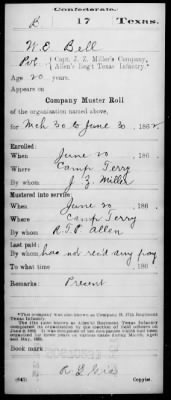 Confederate.
B 17 Texas.
W. E. Bell
Pvt, Capt. J. Z. Miller's Company,
Allen's Reg't Texas Infantry.*
Age 20 years.
Appears on
Company Muster Roll
of the organization named above,
for Mch 30 to June 30, 1862.
Enrolled:
When June 20, 186 .
Where Camp Terry
By whom J. Z. Miller
Mustered into service:
When June 20, 186 .
Where Camp Terry
By whom R. T. P. Allen
Last paid:
By whom has not recd any pay
To what time , 186 .
Remarks: Present
*This company was also known as Company B, 17th Regiment
Texas Infantry.
Book mark:
(642) Copyist.